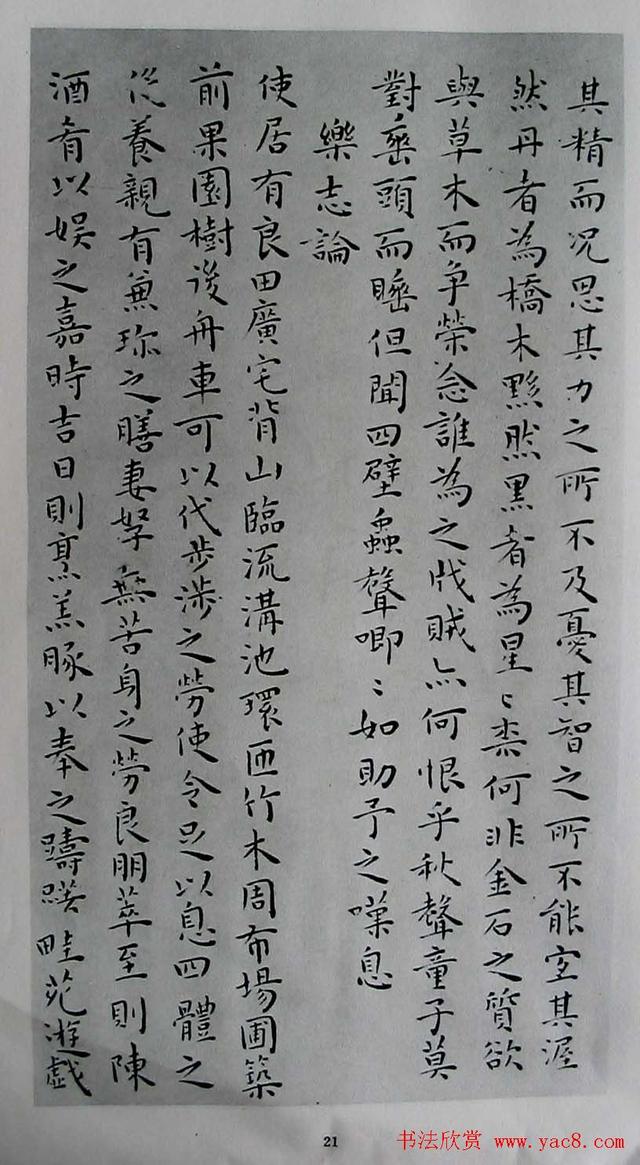 其精而况思其力之所不及憂其智之所不能宜其渥
然丹者為橋木黟然黑者為星〻柰何非金石之質欲
與草木而争榮念誰為之戕賊亦何恨乎秋聲童子莫
對垂頭而睡但聞四壁蟲聲唧〻如助予之嘆息
樂志論
使居有良田廣宅背山臨流溝池環匝竹木周布場圃築
前果園樹後舟車可以代步涉之勞使令足以息四體之
役養親有兼珍之膳妻孥無苦身之勞良朋萃至則陳
酒肴以娱之嘉時吉日則烹羔豚以奉之躊躇畦苑遊戯
21
书法欣赏 www.yac8.com